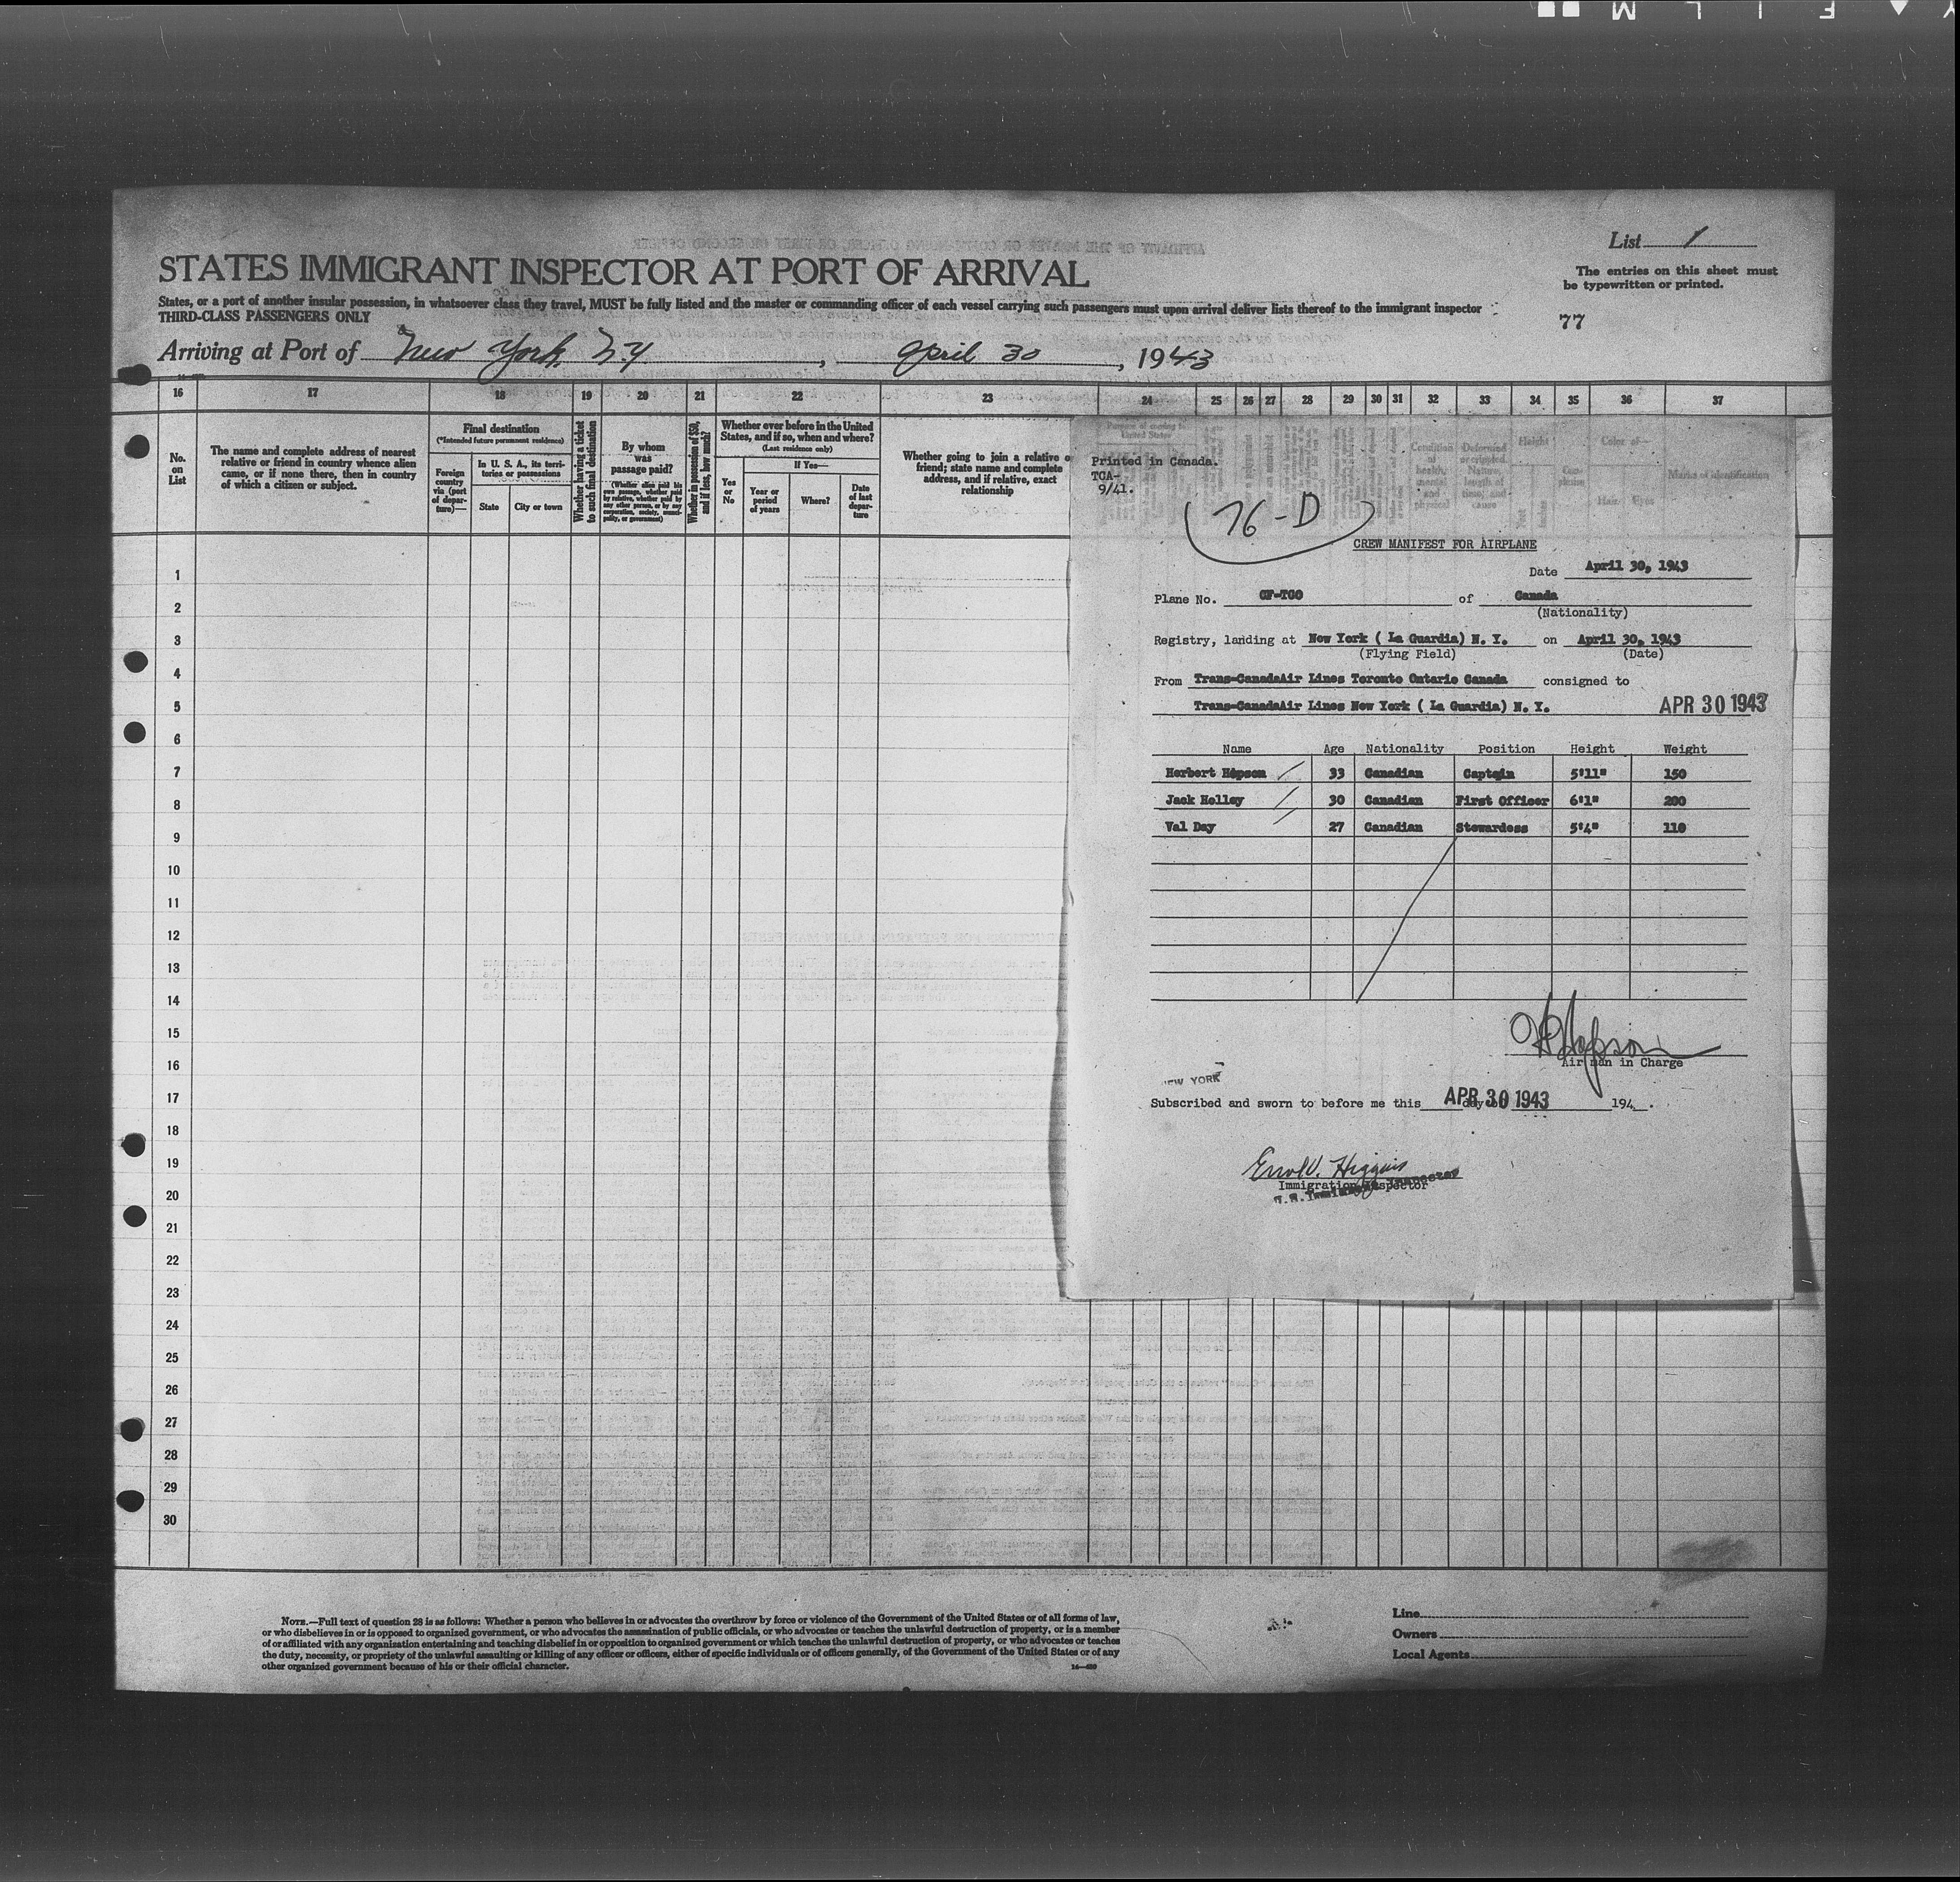 List 1
STATES IMMIGRANT INSPECTOR AT PORT OF ARRIVAL
The entries on this sheet must
be typewritten or printed.
States, or a port of another insular possession, in whatsoever class they travel, MUST be fully listed and the master or commanding officer of each vessel carrying such passengers must upon arrival deliver lists thereof to the immigrant inspector
THIRD-CLASS PASSENGERS ONLY
77
Arriving at Port of New York N.Y, April 30, 1943
16 17 18 19 20 21 22 23 24 25 26 27 28 29 30 31 32 33 34 35 36 37
No.
on
List
The name and complete address of nearest
relative or friend in country whence alien
came, or if none there, then in country
of which a citizen or subject.
Final destination
(*Intended future permanent residence)
Foreign
country
via (port
of depar-
ture)—
In U. S. A., its terri-
tories or possessions
State
City or town
Whether having a ticket
to such final destination
By whom
was
passage paid?
(Whether alien paid his
own passage, whether paid
by relative, whether paid by
any other person, or by any
corporation, society, munici-
pality, or government)
Whether in possession of $50,
and if less, how much?
Whether ever before in the United
States, and if so, when and where?
(Last residence only)
Yes
or
No
If Yes—
Year or
period
of years
Where?
Date
of last
depar-
ture
Whether going to join a relative o
friend; state name and complete
address, and if relative, exact
relationship
Condition
of
health,
mental
and
physical
Deformed
or crippled.
Nature,
length of
time, and
cause
Height
Feet
Inches
Com-
plexion
Color of—
Hair
Eyes
Marks of identification
1
2
3
4
5
6
7
8
9
10
11
12
13
14
15
16
17
18
19
20
21
22
23
24
25
26
27
28
29
30
Printed in Canada.
TCA-
9/41.
76-D
CREW MANIFEST FOR AIRPLANE
Date April 30, 1943
Plane No. CF-TCO of Canada
(Nationality)
Registry, landing at New York ( La Guardia) N. Y. on April 30, 1943
(Flying Field) (Date)
From Trans-CanadaAir Lines Toronto Ontario Canada consigned to
Trans-CanadaAir Lines New York ( La Guardia) N. Y. APR 30 1943
Name Age Nationality Position Height Weight
Herbert Hopson 33 Canadian Captain 5'11" 150
Jack Holley 30 Canadian First Officer 6'1" 200
Val Day 27 Canadian Stewardess 5'4" 110
H Hopson
Air man in Charge
NEW YORK
Subscribed and sworn to before me this APR 30 1943 194 .
Errol V. Higgins
Immigration Inspector
U.S. Immigrant Inspector
NOTE.—Full text of question 28 is as follows: Whether a person who believes in or advocates the overthrow by force or violence of the Government of the United States or of all forms of law,
or who disbelieves in or is opposed to organized government, or who advocates the assassination of public officials, or who advocates or teaches the unlawful destruction of property, or is a member
of or affiliated with any organization entertaining and teaching disbelief in or opposition to organized government or which teaches the unlawful destruction of property, or who advocates or teaches
the duty, necessity, or propriety of the unlawful assaulting or killing of any officer or officers, either of specific individuals or of officers generally, of the Government of the United States or of any
other organized government because of his or their official character.
Line
Owners
Local Agents